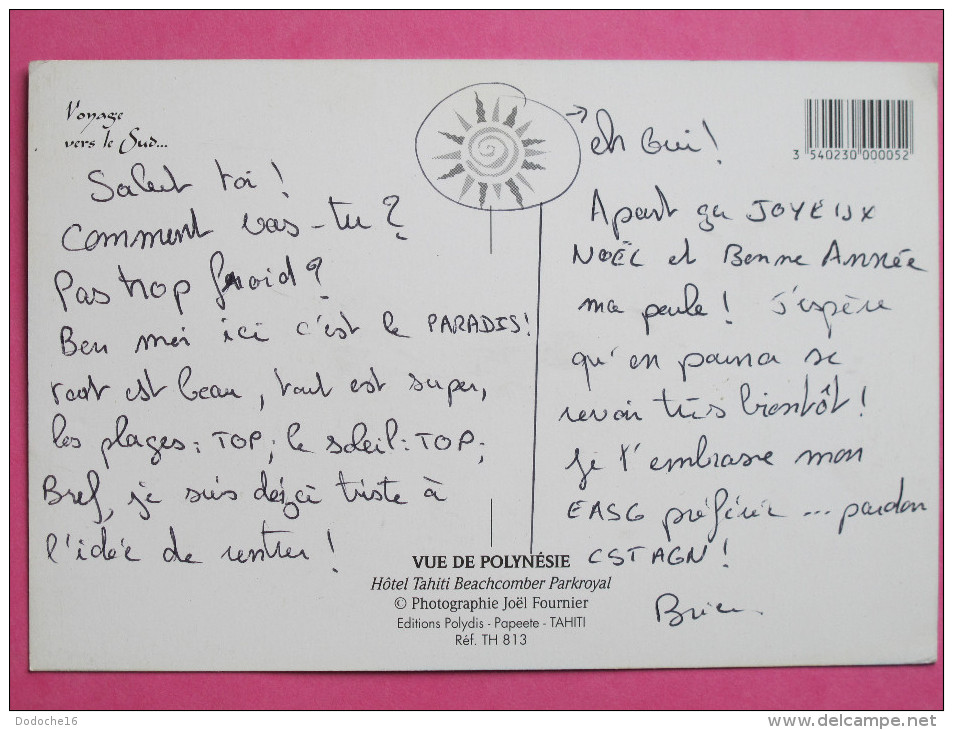 Voyage
vers le Sud...
Salut toi !
Comment vas-tu ?
Pas trop froid ?
Ben moi ici c'est le PARADIS !
tout est beau, tout est super,
les plages : TOP ; le soleil : TOP ;
Bref, je suis déjà triste à
l'idée de rentrer !
→ eh oui !
Apart ça JOYEUX
NOËL et Bonne Année
ma poule ! J'espère
qu'on pourra se
revoir très bientôt !
Je t'embrasse mon
EASG préféré ... pardon
CSTAGN !
3 540230 000052
VUE DE POLYNÉSIE
Hôtel Tahiti Beachcomber Parkroyal
© Photographie Joël Fournier
Editions Polydis - Papeete - TAHITI
Réf. TH 813
Dodoche16
www.delcampe.net